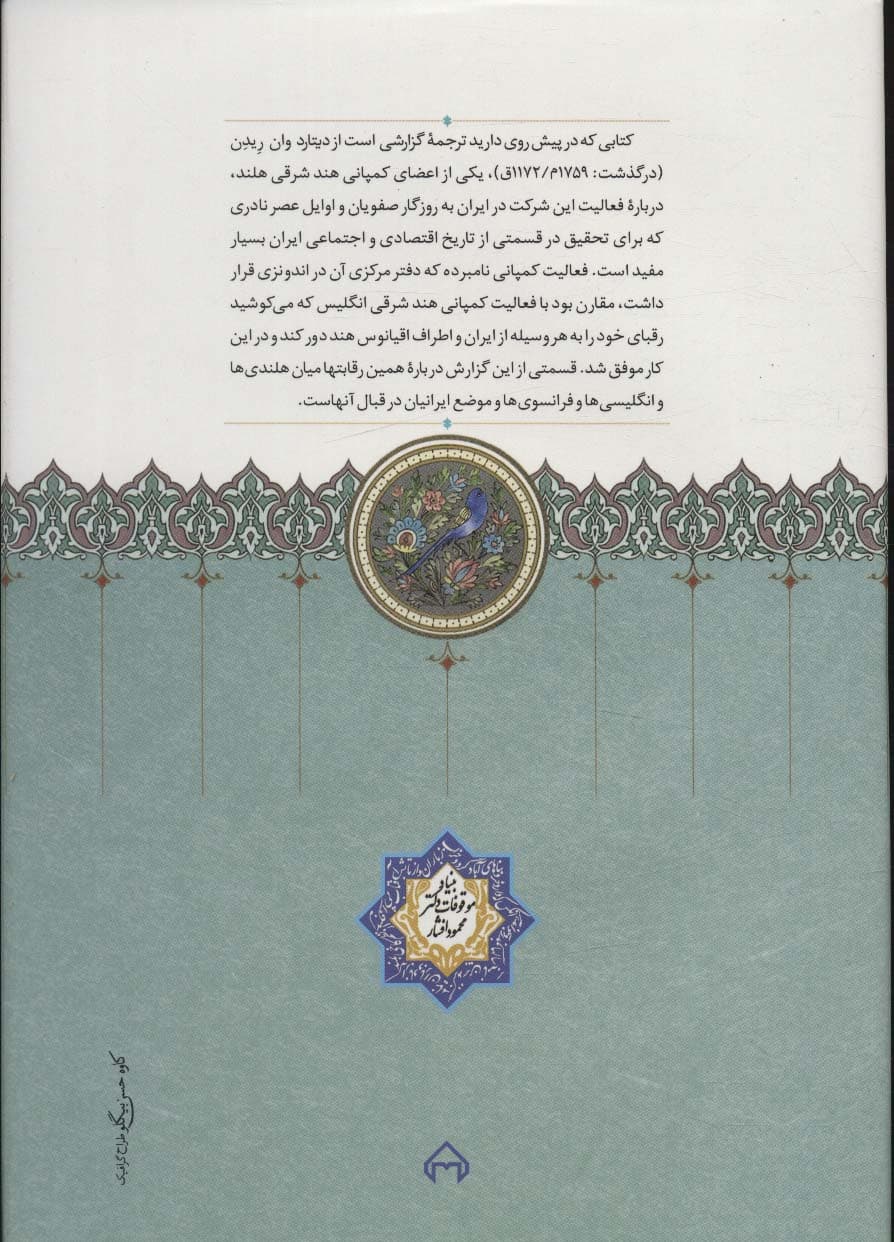 کتابی که در پیش روی دارید ترجمهٔ گزارشی است از دیتارد وان رِیدِن
(درگذشت: ۱۷۵۹م/۱۱۷۲ق)، یکی از اعضای کمپانی هند شرقی هلند،
دربارهٔ فعالیت این شرکت در ایران به روزگار صفویان و اوایل عصر نادری
که برای تحقیق در قسمتی از تاریخ اقتصادی و اجتماعی ایران بسیار
مفید است. فعالیت کمپانی نامبرده که دفتر مرکزی آن در اندونزی قرار
داشت، مقارن بود با فعالیت کمپانی هند شرقی انگلیس که می‌کوشید
رقبای خود را به هر وسیله از ایران و اطراف اقیانوس هند دور کند و در این
کار موفق شد. قسمتی از این گزارش دربارهٔ همین رقابتها میان هلندی‌ها
و انگلیسی‌ها و فرانسوی‌ها و موضع ایرانیان در قبال آنهاست.
بنیاد
موقوفات دکتر
محمود افشار
کاوه حسن بیگلو طراح گرافیک